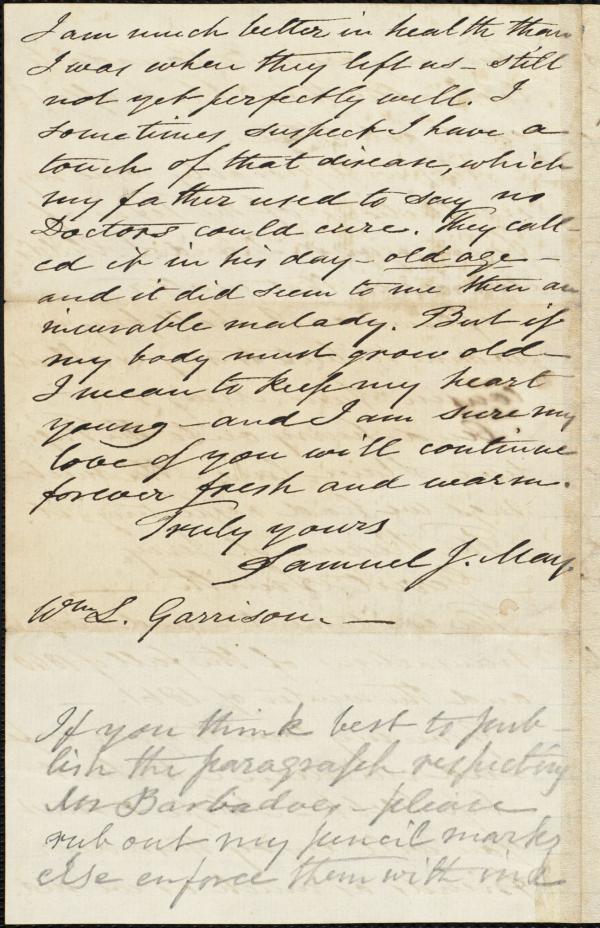 I am much better in health than
I was when they left us – still
not yet perfectly well. I
sometimes suspect I have a
touch of that disease, which
my father used to say no
Doctors could cure. They call-
ed it in his day – old age –
and it did seem to me then an
incurable malady. But if
my body must grow old –
I mean to keep my heart
young – and I am sure my
love of you will continue
forever fresh and warm.
Truly yours
Samuel J. May.
Wm L. Garrison. —
If you think best to pub-
lish the paragraph respecting
Mr Barbadoes – please
rub out my pencil marks
else enforce them with ink